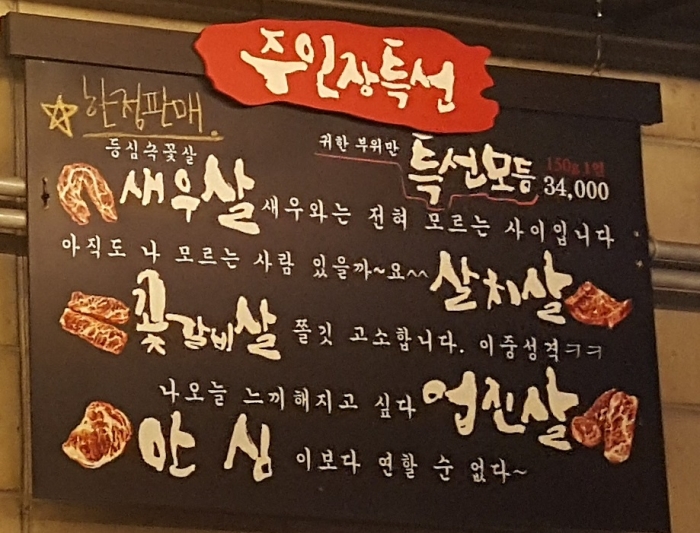 주인장특선
☆ 한정판매.
귀한 부위만 특선모듬 150g 1인 34,000
등심속꽃살
새우살 새우와는 전혀 모르는 사이입니다
아직도 나 모르는 사람 있을까~요^^ 살치살
꽃갈비살 쫄깃 고소합니다. 이중성격ㅋㅋ
나오늘 느끼해지고 싶다 업진살
안심 이보다 연할 순 없다~